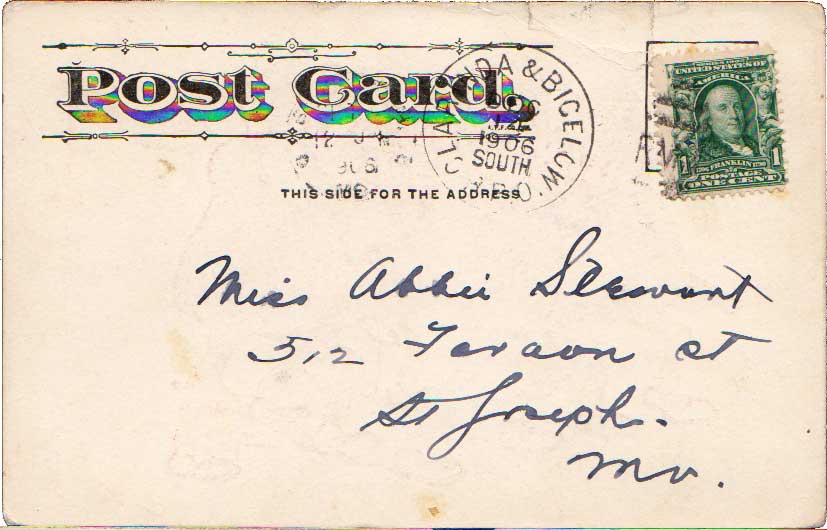 Post Card.
CLARINDA & BIGELOW.
DEC
12
1906
SOUTH
R.P.O.
12
1906
MO.
THIS SIDE FOR THE ADDRESS
SERIES 1902
UNITED STATES OF
AMERICA
1 FRANKLIN 1
POSTAGE
ONE CENT
Miss Abbie Stewart
512 Faraon st
St Joseph.
Mo.